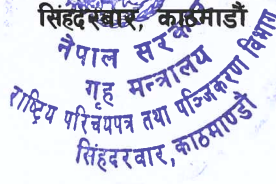 सिंहदरबार, काठमाडौं
नेपाल सरकार
गृह मन्त्रालय
राष्ट्रिय परिचयपत्र तथा पञ्जिकरण विभाग
सिंहदरवार, काठमाण्डौ